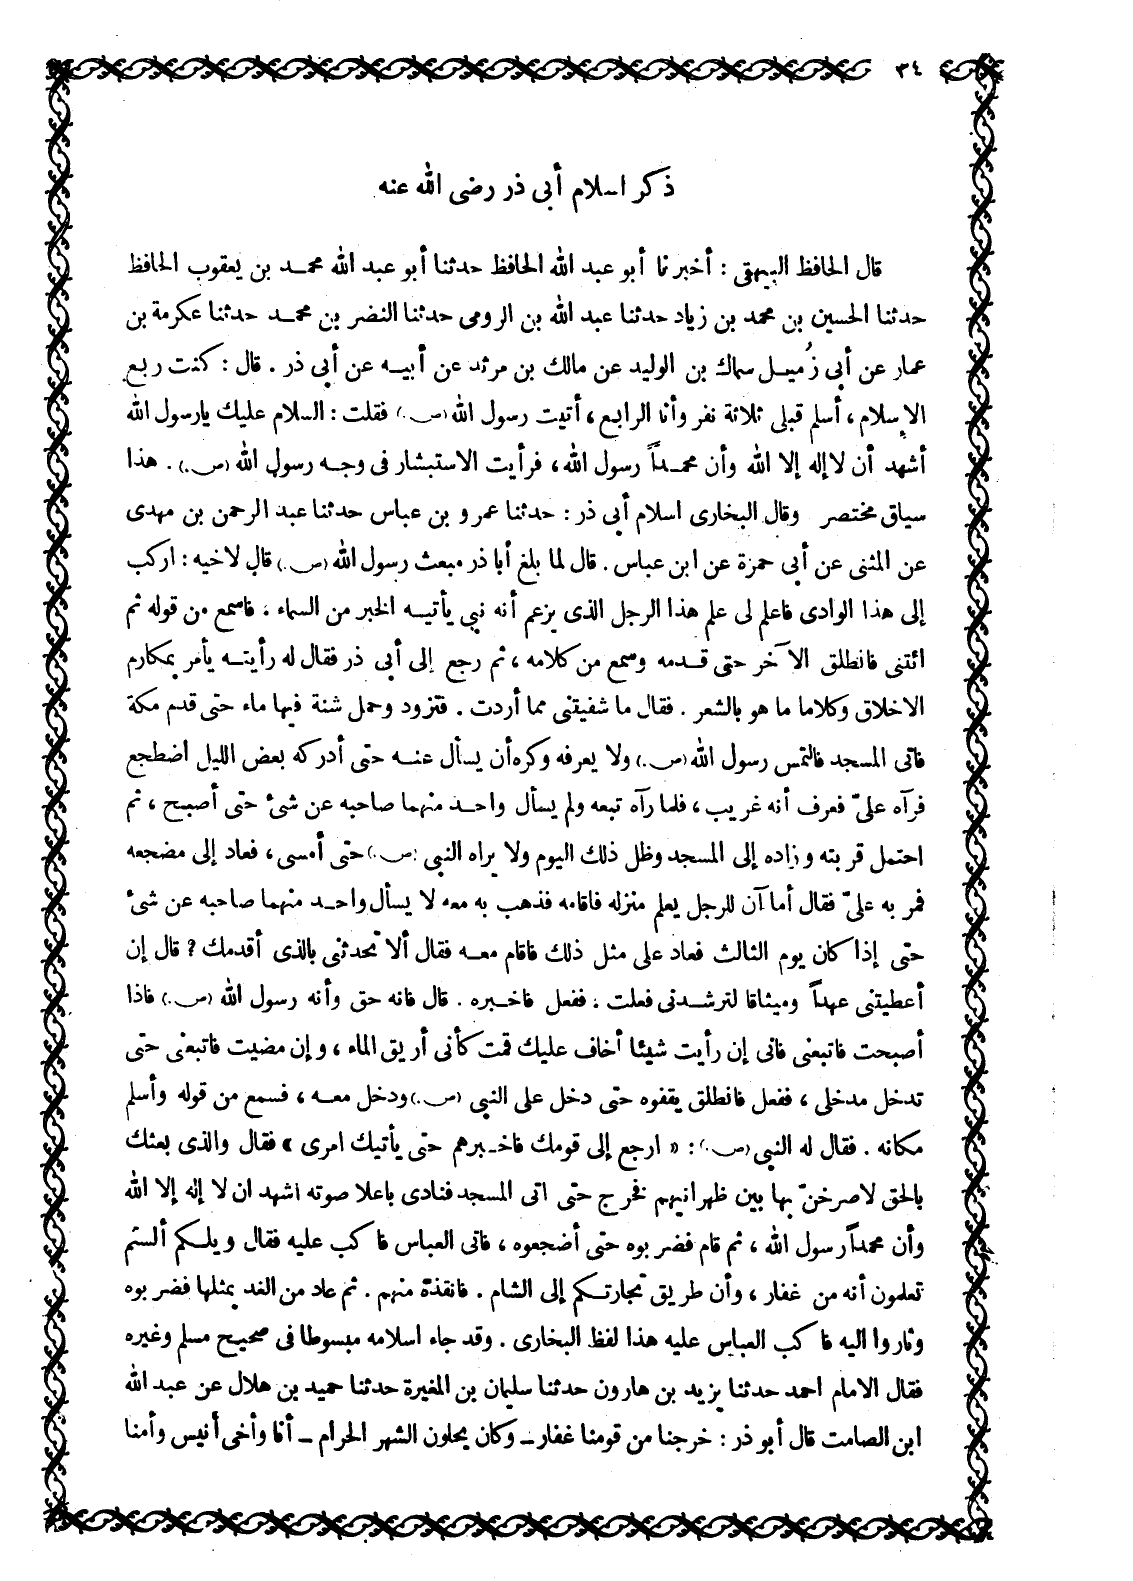 ٣٤
ذكر اسلام أبى ذر رضى الله عنه
قال الحافظ البيهقى : أخبرنا أبو عبد الله الحافظ حدثنا أبو عبد الله محمد بن يعقوب الحافظ
حدثنا الحسين بن محمد بن زياد حدثنا عبد الله بن الرومى حدثنا النضر بن محمد حدثنا عكرمة بن
عمار عن أبى زُميل سماك بن الوليد عن مالك بن مرثد عن أبيه عن أبى ذر . قال : كنت ربع
الإسلام ، أسلم قبلى ثلاثة نفر وأنا الرابع ، أتيت رسول الله (ص.) فقلت : السلام عليك يارسول الله
أشهد أن لاإله إلا الله وأن محمداً رسول الله ، فرأيت الاستبشار فى وجه رسول الله (ص.) . هذا
سياق مختصر وقال البخارى اسلام أبى ذر : حدثنا عمرو بن عباس حدثنا عبد الرحمن بن مهدى
عن المثنى عن أبى حمزة عن ابن عباس . قال لما بلغ أبا ذر مبعث رسول الله (ص.) قال لاخيه : اركب
إلى هذا الوادى فاعلم لى علم هذا الرجل الذى يزعم أنه نبي يأتيه الخبر من السماء ، فاسمع من قوله ثم
ائتنى فانطلق الآخر حتى قدمه وسمع من كلامه ، ثم رجع إلى أبى ذر فقال له رأيته يأمر بمكارم
الاخلاق وكلاما ما هو بالشعر . فقال ما شفيتنى مما أردت . فتزود وحمل شنة فيها ماء حتى قدم مكة
فاتى المسجد فالتمس رسول الله (ص.) ولا يعرفه وكره أن يسأل عنه حتى أدركه بعض الليل اضطجع
فرآه علىّ فعرف أنه غريب ، فلما رآه تبعه ولم يسأل واحد منهما صاحبه عن شئ حتى أصبح ، ثم
احتمل قربته وزاده إلى المسجد وظل ذلك اليوم ولا يراه النبي (ص.) حتى أمسى ، فعاد إلى مضجعه
فمر به علىّ فقال أما آن للرجل يعلم منزله فاقامه فذهب به معه لا يسأل واحد منهما صاحبه عن شئ
حتى إذا كان يوم الثالث فعاد على مثل ذلك فاقام معه فقال ألا تحدثنى بالذى أقدمك ؟ قال إن
أعطيتنى عهداً وميثاقا لترشدنى فعلت . ففعل فاخبره . قال فانه حق وأنه رسول الله (ص.) فاذا
أصبحت فاتبعنى فانى إن رأيت شيئا أخاف عليك قمت كأنى أريق الماء ، وإن مضيت فاتبعنى حتى
تدخل مدخلى ، ففعل فانطلق يقفوه حتى دخل على النبي (ص.) ودخل معه ، فسمع من قوله وأسلم
مكانه . فقال له النبي (ص.) : « ارجع إلى قومك فاخبرهم حتى يأتيك امرى » فقال والذى بعثك
بالحق لاصرخنّ بها بين ظهرانيهم فخرج حتى اتى المسجد فنادى باعلا صوته اشهد ان لا إله إلا الله
وأن محمداً رسول الله ، ثم قام فضربوه حتى أضجعوه ، فاتى العباس فاكب عليه فقال ويلكم ألستم
تعلمون أنه من غفار ، وأن طريق تجارتكم إلى الشام . فانقذة منهم . ثم عاد من الغد بمثلها فضربوه
وثاروا اليه فاكب العباس عليه هذا لفظ البخارى . وقد جاء اسلامه مبسوطا فى صحيح مسلم وغيره
فقال الامام احمد حدثنا يزيد بن هارون حدثنا سليمان بن المغيرة حدثنا حميد بن هلال عن عبد الله
ابن الصامت قال أبو ذر : خرجنا من قومنا غفار ــ وكان يحلون الشهر الحرام ــ أنا وأخى أنيس وأمنا